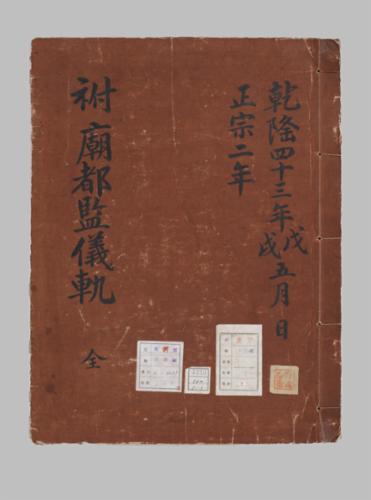 乾隆四十三年戊戌五月 日
正宗二年
祔廟都監儀軌 全